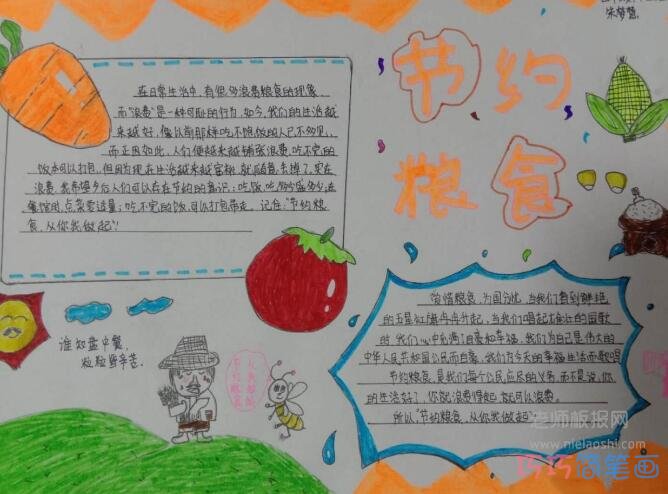 朱梦慧
节约
粮食
在日常生活中，有很多浪费粮食的现象，
而"浪费"是一种可耻的行为，如今，我们的生活越
来越好，像以前那样吃不饱饭的人已不多见，
而正因如此，人们便越来越铺张浪费，吃不完的
饭本可以打包，但因为现在生活越来越富裕，就随意丢掉了，实在
浪费，我希望今后人们可以存在节约的意识：吃饭，吃多少盛多少；去
餐馆时，点菜要适量；吃不完的饭，可以打包带走，记住："节约粮
食，从你我做起"！
谁知盘中餐，
粒粒皆辛苦。
人人有责
节约粮食
爱惜粮食，为国分忧，当我们看到鲜艳
的五星红旗冉冉升起，当我们唱起不朽的国歌
时，我们心中充满了自豪和幸福，我们为自己是伟大的
中华人民共和国公民而自豪，我们为今天的幸福生活而歌唱
节约粮食，是我们每个公民应尽的义务，而不是说，你
的生活好了，你就浪费得起，就可以浪费。
所以，"节约粮食，从你我做起"
老师板报网
www.nielaoshi.com
巧巧简笔画